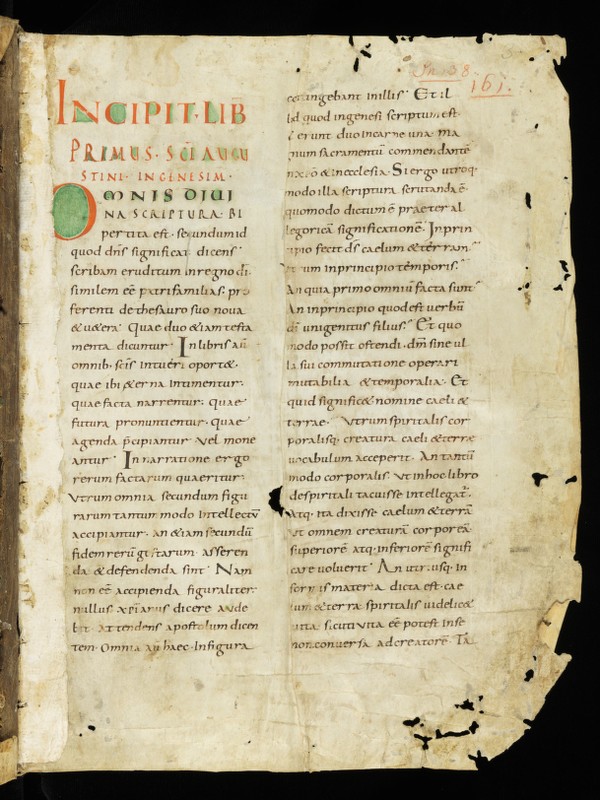 INCIPIT·LIB
PRIMUS·SCI AUGU
STINI·INGENESIM·
OMNIS DIUI
NA SCRIPTURA·BI
pertita est·secundum id
quod dn̄s significat dicens
scribam eruditum in regno di
similem eē patrifamilias· pro
ferenti de thesauro suo noua
&uetera· Quae duo &iam testa
menta dicuntur· In libris aū
omnib· scīs intueri oport&·
quae ibi &erna intimentur·
quae facta narrentur· quae
futura pronuntientur· quae
agenda p̄cipiantur vel mone
antur· In narratione ergo
rerum factarum quaeritur·
Vtrum omnia secundum figu
rarum tantum modo intellectū
accipiantur· an &iam secundū
fidem rerū gestarum· asseren
da &defendenda sint· Nam
non eē accipienda figuraliter·
nullus xpīanus dicere aude
bit· Attendens apostolum dicen
tem· Omnia aū haec· Infigura
In 38.
161.
contingebant in illis· Et il
lud quod ingenesi scriptum est·
& erunt duo incarne una· ma
gnum sacramentū commendant̄
inxp̄o &inecclesia· Si ergo utroq·
modo illa scriptura scrutanda ē·
quomodo dictum ē praeter al
legoricā significationē· In prin
cipio fecit dīs caelum &terram·
Vtrum inprincipio temporis·
An quia primo omniū facta sunt·
An inprincipio quod est verbū
dī unigenitus filius· Et quo
modo possit ostendi· dm̄ sine ul
la sui commutatione operari
mutabilia &temporalia· Et
quid signific& nomine caeli &
terrae· Vtrum spiritalis cor
poralisq· creatura caeli &terrae
vocabulum acceperit· An tantū
modo corporalis· Vt inhoc libro
despiritali tacuisse intellegat̄·
Atq· ita dixisse caelum &terrā
ut omnem creaturā corporeā·
superiorē atq· inferiorē signifi
care voluerit· An utriusq· in
formis materia dicta est· cae
lum &terra spiritalis videlic&
uita· sicuti vita eē potest inse
non conuersa ad creatorē· Ta